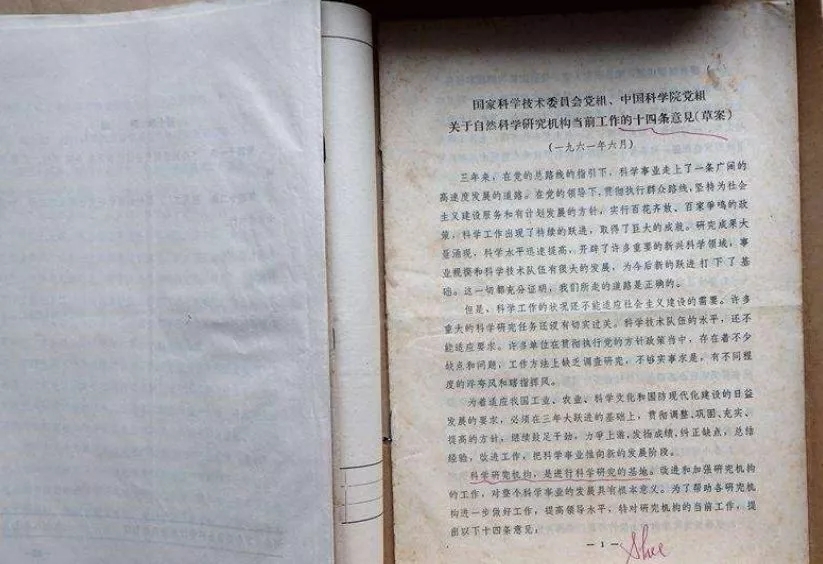 国家科学技术委员会党组、中国科学院党组
关于自然科学研究机构当前工作的十四条意见(草案)
(一九六一年六月)
三年来，在党的总路线的指引下，科学事业走上了一条广阔的
高速度发展的道路。在党的领导下，贯彻执行群众路线，坚持为社会
主义建设服务和有计划发展的方针，实行百花齐放、百家争鸣的政
策，科学工作出现了持续的跃进，取得了巨大的成就。研究成果大
量涌现，科学水平迅速提高，开辟了许多重要的新兴科学领域，事
业规模和科学技术队伍有很大的发展，为今后新的跃进打下了基
础。这一切都充分证明，我们所走的道路是正确的。
但是，科学工作的状况还不能适应社会主义建设的需要。许多
重大的科学研究任务还没有切实过关。科学技术队伍的水平，还不
能适应要求。许多单位在贯彻执行党的方针政策当中，存在着不少
缺点和问题，工作方法上缺乏调查研究，不够实事求是，有不同程
度的浮夸风和瞎指挥风。
为着适应我国工业、农业、科学文化和国防现代化建设的日益
发展的要求，必须在三年大跃进的基础上，贯彻调整、巩固、充实、
提高的方针，继续鼓足干劲，力争上游，发扬成绩，纠正缺点，总结
经验，改进工作，把科学事业推向新的发展阶段。
科学研究机构，是进行科学研究的基地。改进和加强研究机构
的工作，对整个科学事业的发展具有根本意义。为了帮助各研究机
构进一步做好工作，提高领导水平，特对研究机构的当前工作，提
出以下十四条意见：
— 1 —